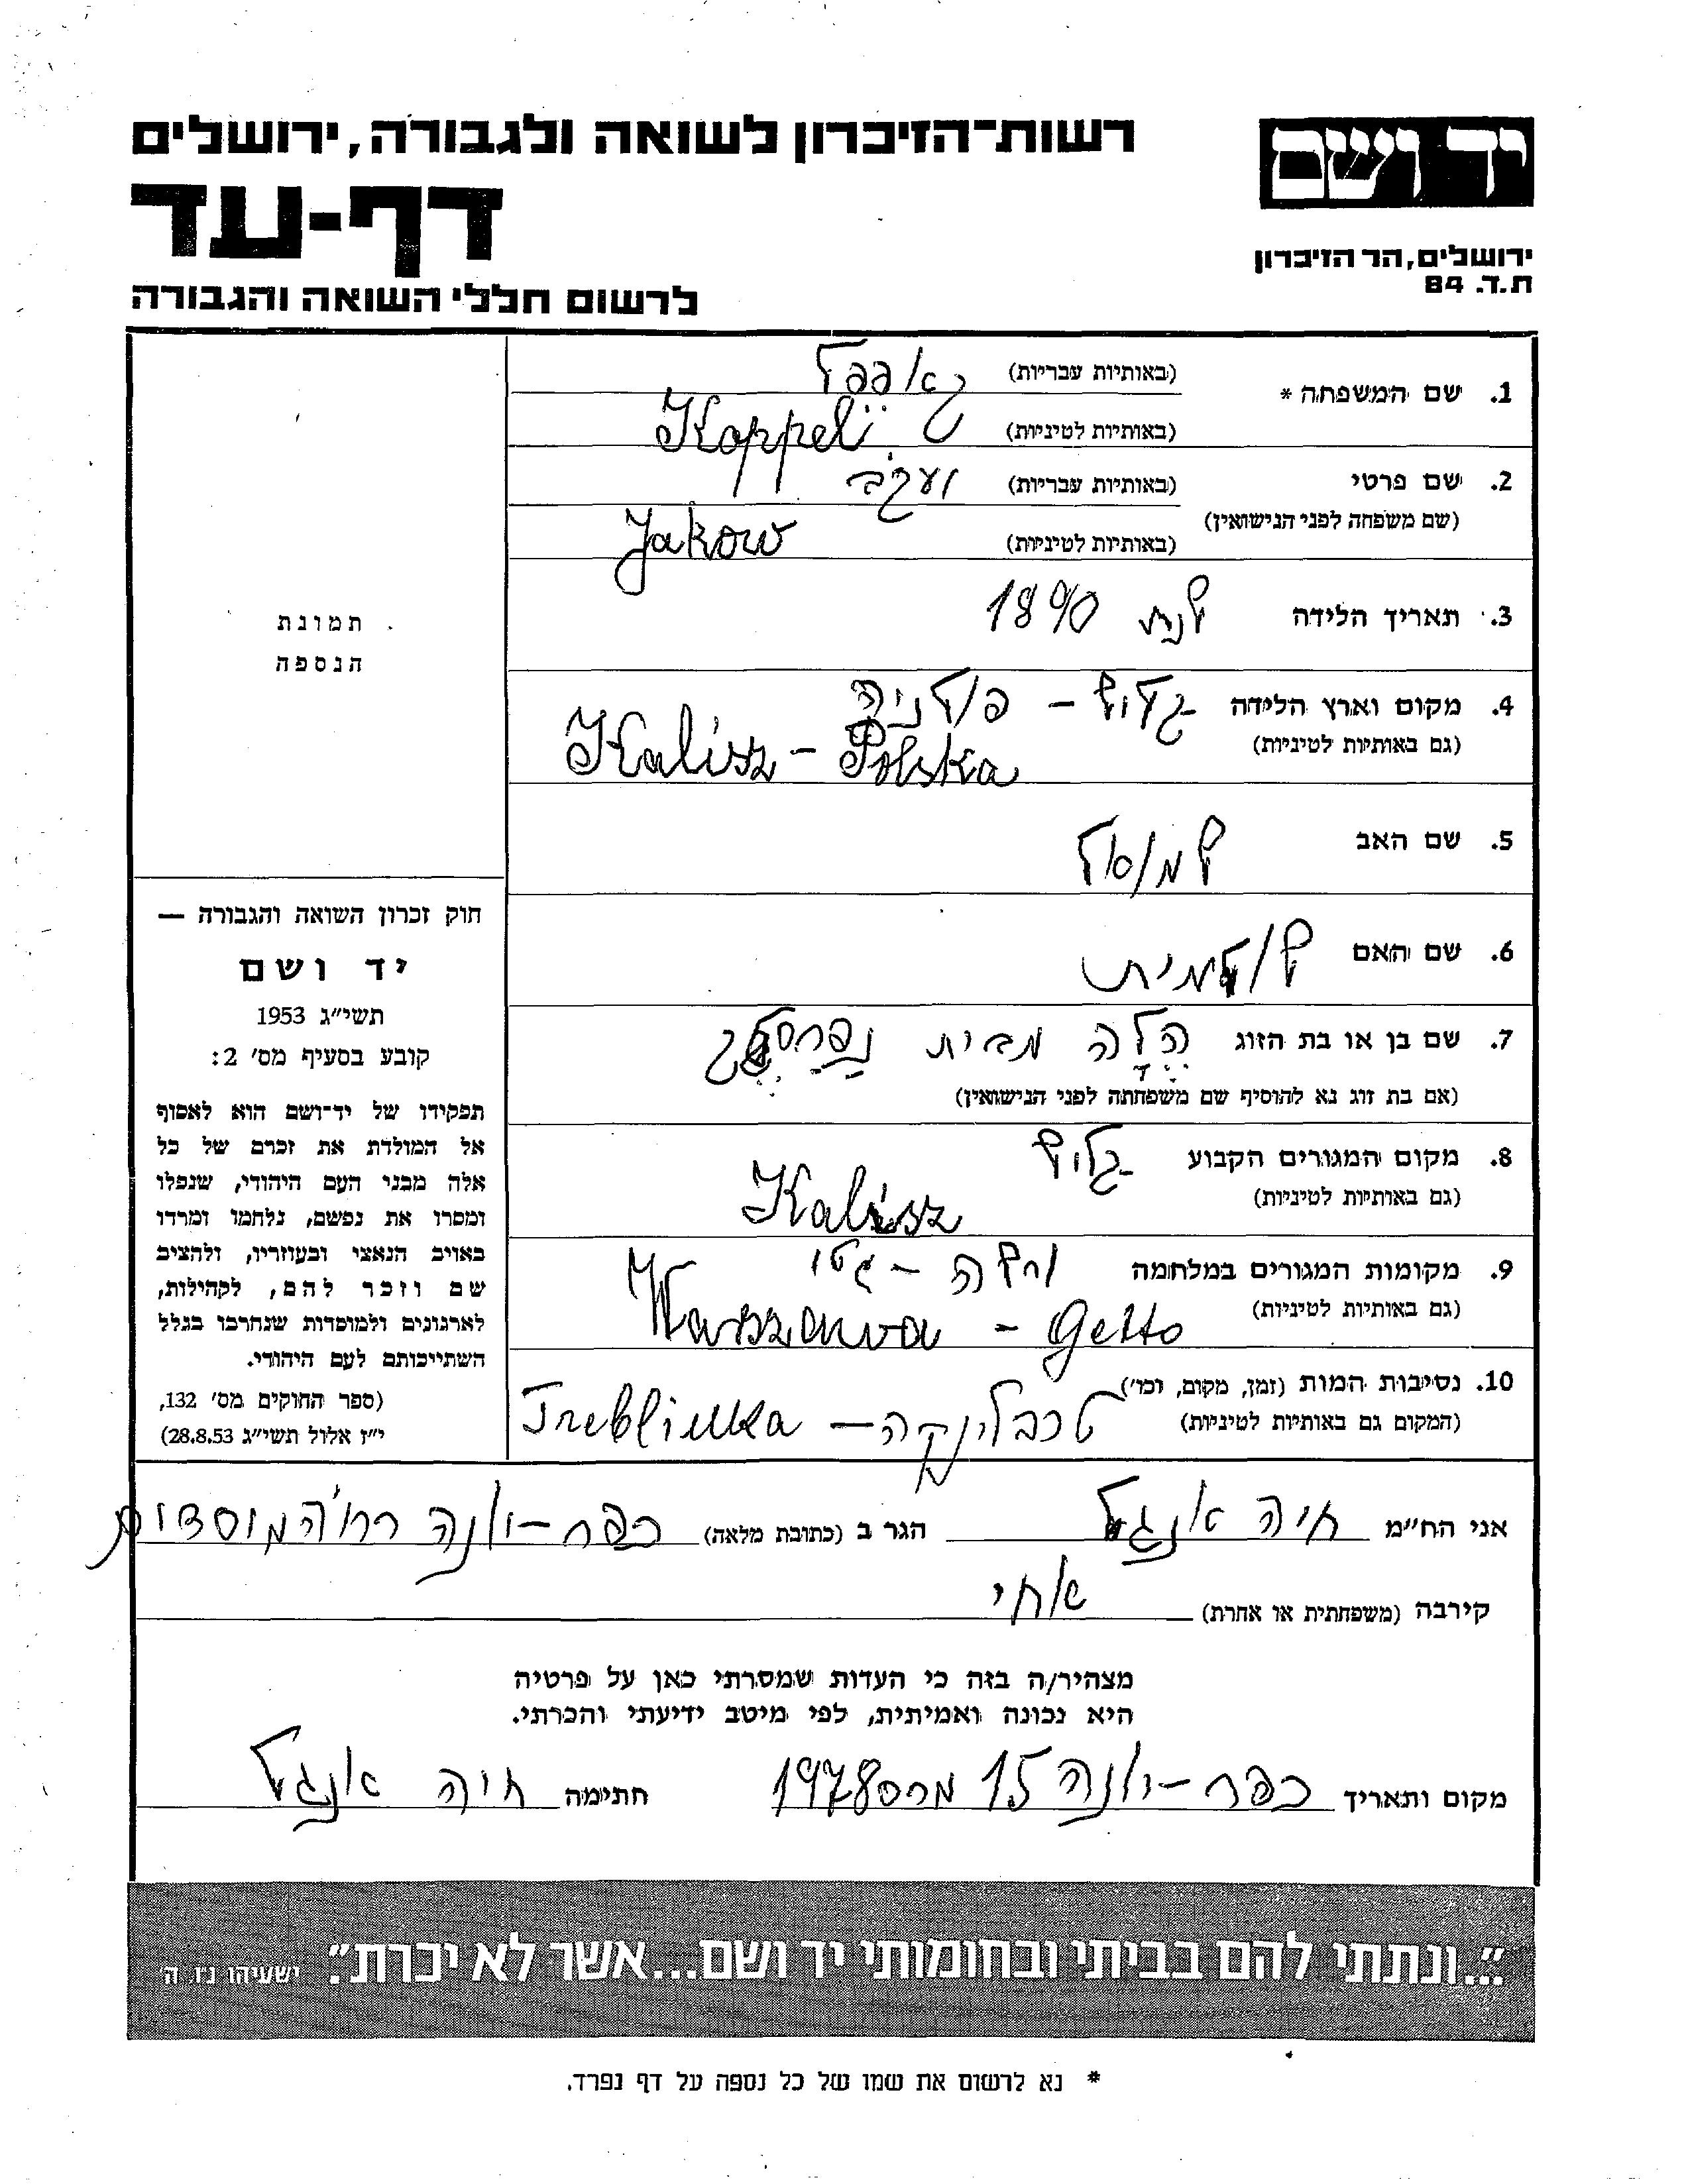 רשות־הזיכרון לשואה ולגבורה, ירושלים
דף-עד
לרשום חללי השואה והגבורה
יד ושם
ירושלים, הר הזיכרון
ת.ד. 84
1. שם המשפחה * (באותיות עבריות) קאפפל
(באותיות לטיניות) Koppel
2. שם פרטי (באותיות עבריות) יעקב
(שם משפחה לפני הנישואין)
(באותיות לטיניות) Jakow
3. תאריך הלידה שנת 1890
4. מקום וארץ הלידה קליש – פולניה
(גם באותיות לטיניות) Kalisz – Polska
5. שם האב שמואל
6. שם האם שולמית
7. שם בן או בת הזוג הלה מבית
(אם בת זוג נא להוסיף שם משפחתה לפני הנישואין)
8. מקום המגורים הקבוע קליש
(גם באותיות לטיניות) Kalisz
9. מקומות המגורים במלחמה ורשה – גטו
(גם באותיות לטיניות) Warszawa – Getto
10. נסיבות המות (זמן, מקום, וכו')
(המקום גם באותיות לטיניות) טרבלינקה – Treblinka
תמונת
הנספה
חוק זכרון השואה והגבורה —
יד ושם
תשי״ג 1953
קובע בסעיף מס׳ 2:
תפקידו של יד־ושם הוא לאסוף
אל המולדת את זכרם של כל
אלה מבני העם היהודי, שנפלו
ומסרו את נפשם, נלחמו ומרדו
באויב הנאצי ובעוזריו, ולהציב
שם וזכר להם, לקהילות,
לארגונים ולמוסדות שנחרבו בגלל
השתייכותם לעם היהודי.
(ספר החוקים מס׳ 132,
י״ז אלול תשי״ג 28.8.53)
אני הח״מ חיה אנגל הגר ב (כתובת מלאה) כפר-יונה רח' המוסדות
קירבה (משפחתית או אחרת) אחי
מצהיר/ה בזה כי העדות שמסרתי כאן על פרטיה
היא נכונה ואמיתית, לפי מיטב ידיעתי והכרתי.
מקום ותאריך כפר-יונה 15 מרס 1978 חתימה חיה אנגל
״...ונתתי להם בביתי ובחומותי יד ושם...אשר לא יכרת״. ישעיהו נ״ו, ה׳
* נא לרשום את שמו של כל נספה על דף נפרד.